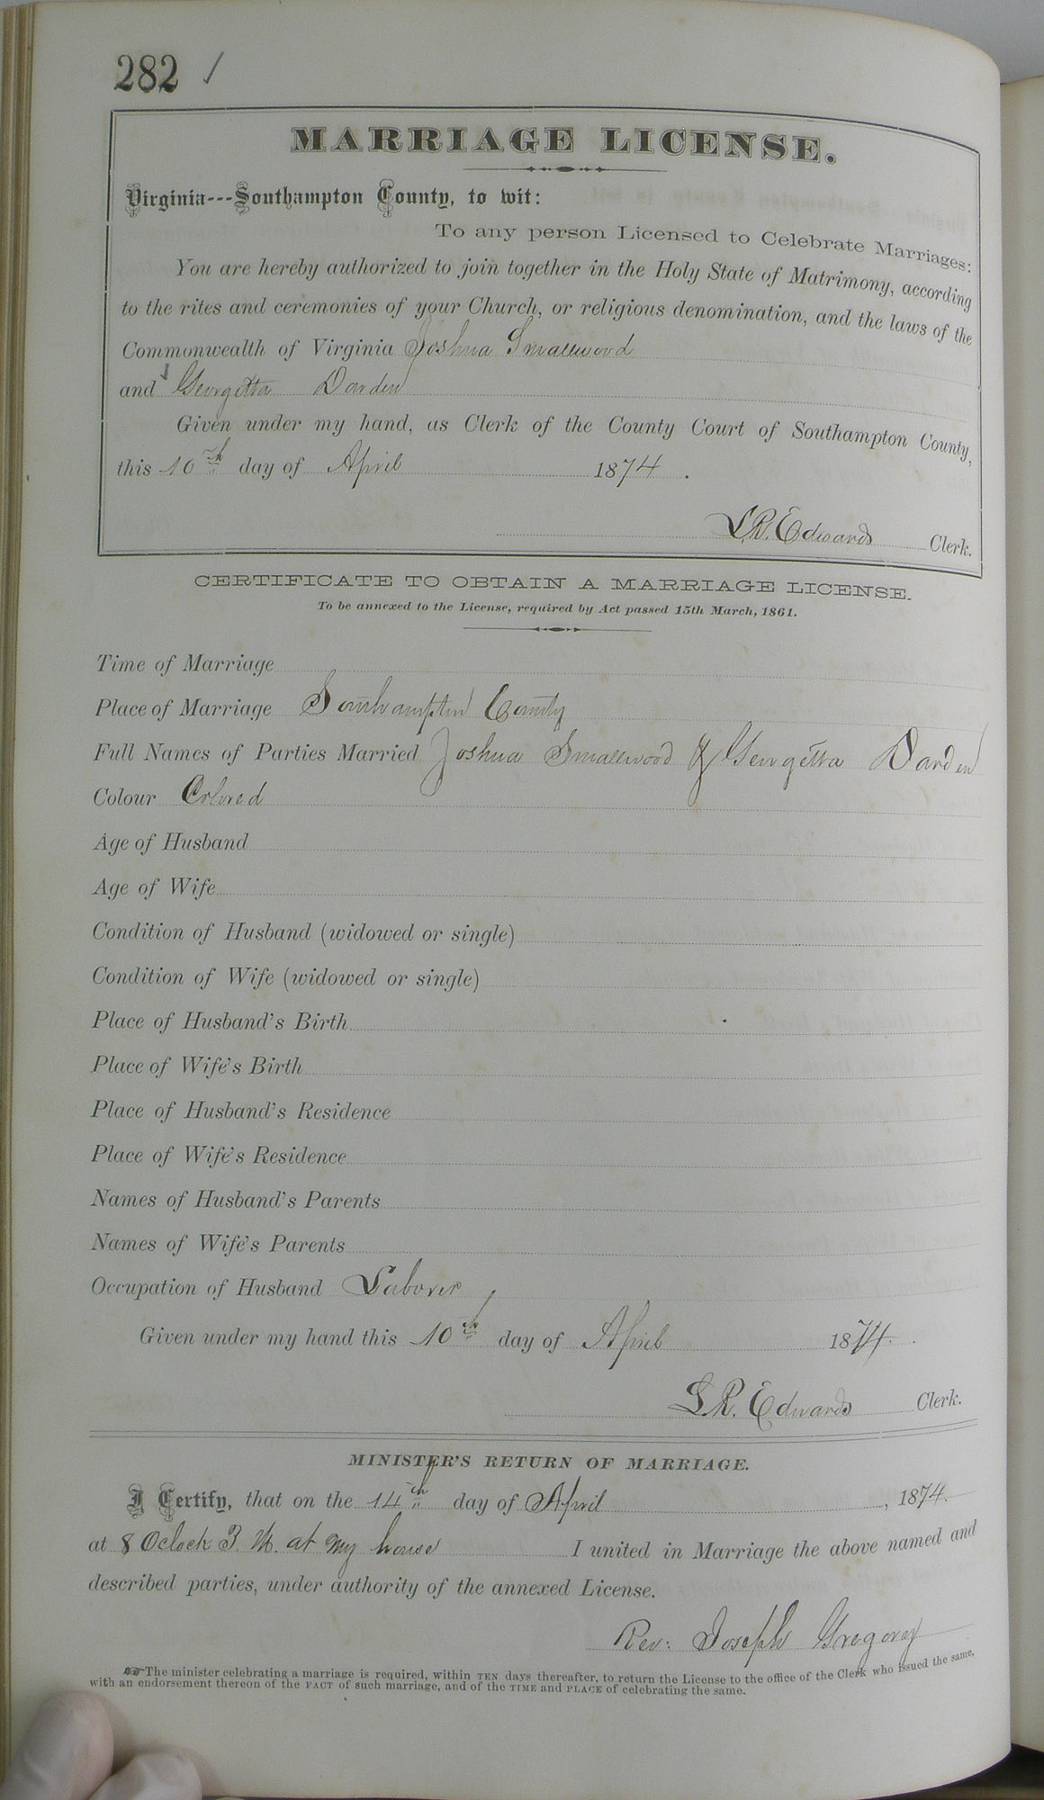 282 ✓
MARRIAGE LICENSE.
Virginia---Southampton County, to wit:
To any person Licensed to Celebrate Marriages:
You are hereby authorized to join together in the Holy State of Matrimony, according
to the rites and ceremonies of your Church, or religious denomination, and the laws of the
Commonwealth of Virginia Joshua Smallwood
and Georgetta Darden
Given under my hand, as Clerk of the County Court of Southampton County,
this 10th day of April 1874.
L.R. Edwards Clerk.
CERTIFICATE TO OBTAIN A MARRIAGE LICENSE.
To be annexed to the License, required by Act passed 15th March, 1861.
Time of Marriage
Place of Marriage Southampton County
Full Names of Parties Married Joshua Smallwood & Georgetta Darden
Colour Colored
Age of Husband
Age of Wife
Condition of Husband (widowed or single)
Condition of Wife (widowed or single)
Place of Husband's Birth
Place of Wife's Birth
Place of Husband's Residence
Place of Wife's Residence
Names of Husband's Parents
Names of Wife's Parents
Occupation of Husband Laborer
Given under my hand this 10th day of April 1874.
L.R. Edwards Clerk.
MINISTER'S RETURN OF MARRIAGE.
I Certify, that on the 14th day of April, 1874.
at 8 Oclock M. at my house I united in Marriage the above named and
described parties, under authority of the annexed License.
Rev: Joseph Gregory
The minister celebrating a marriage is required, within TEN days thereafter, to return the License to the office of the Clerk who issued the same,
with an endorsement thereon of the FACT of such marriage, and of the TIME and PLACE of celebrating the same.